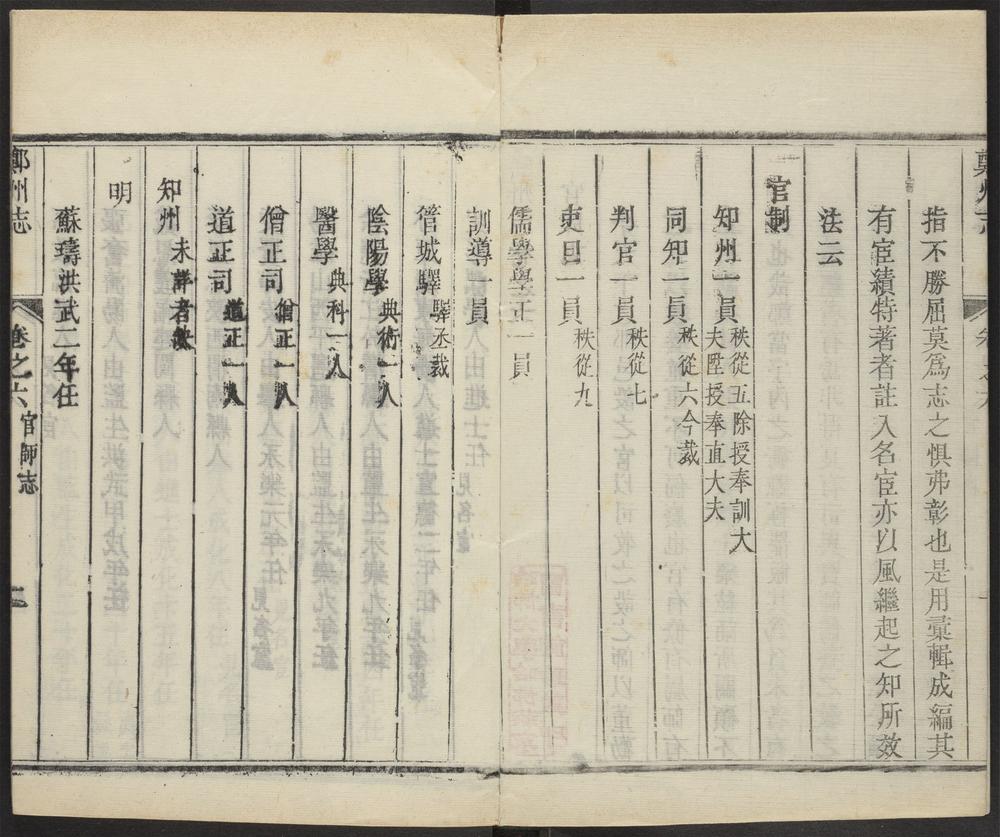 指不勝屈莫爲志之惧弗彰也是用彙輯成編其
有宦績特著者註入名宦亦以風繼起之知所效
法云
官制
知州一員秩從五除授奉訓大
夫陞授奉直大夫
同知一員秩從六今裁
判官一員秩從七
吏目一員秩從九
儒學學正一員
訓導一員
管城驛驛丞裁
陰陽學典術一人
醫學典科一人
僧正司僧正一人
道正司道正一人
知州未詳者缺
明
蘇璹洪武二年任
鄭州志
卷之六
官師志
二